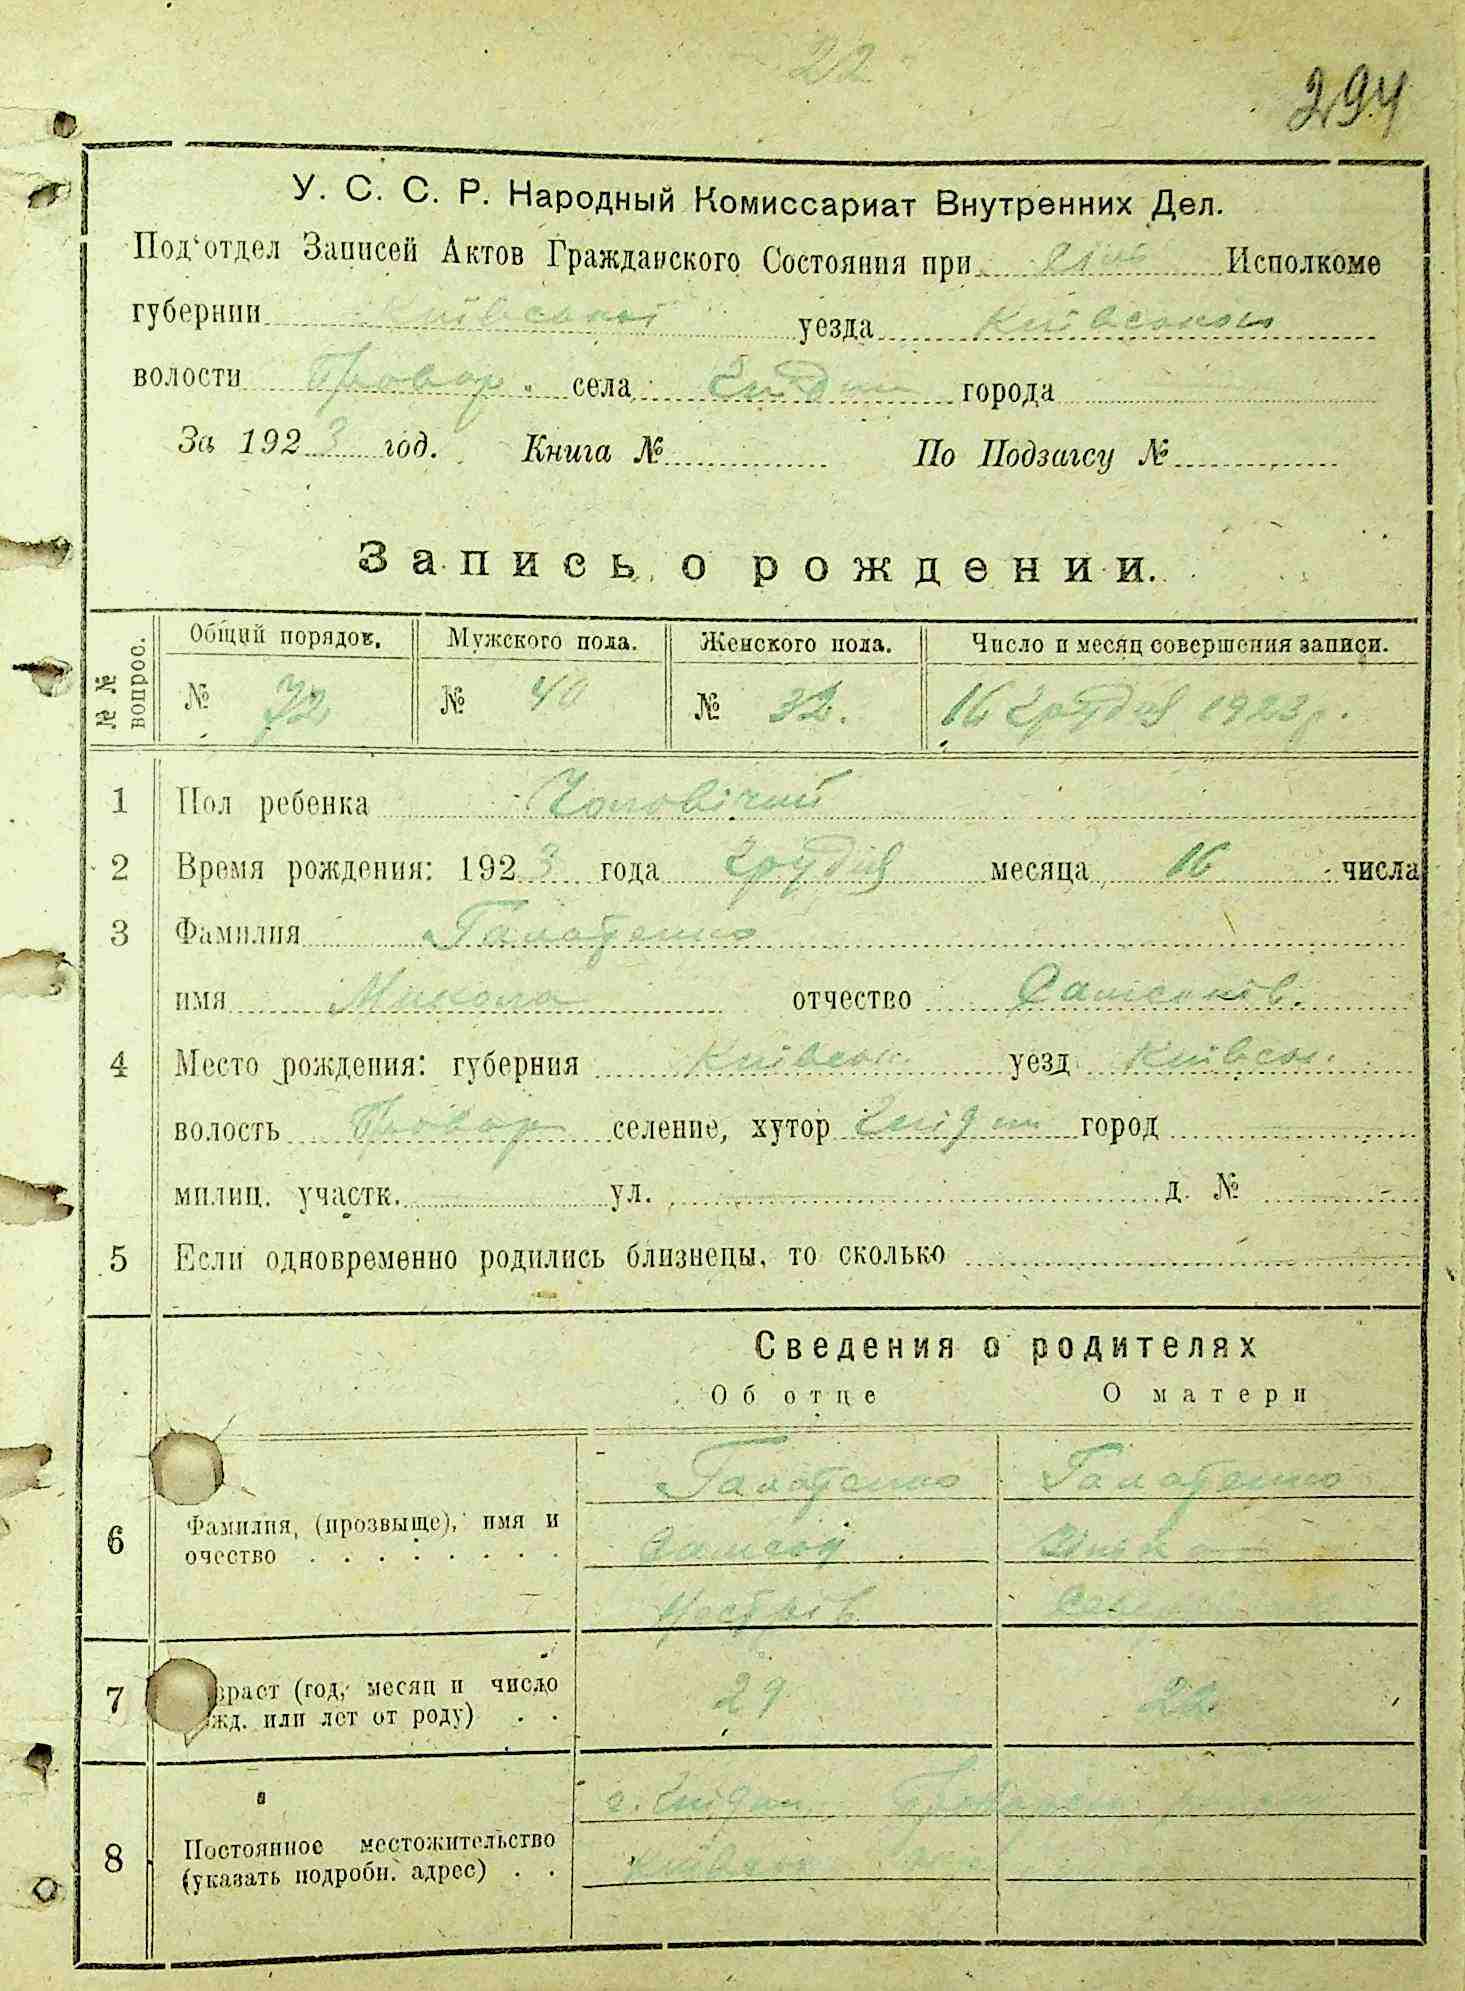 22
294
У. С. С. Р. Народный Комиссариат Внутренних Дел.
Под'отдел Записей Актов Гражданского Состояния при Исполкоме
губернии Київської уезда Київського
волости Бровар. села города
За 1923 год. Книга № По Подзагсу №
Запись о рождении.
№№ вопрос. Общий порядок. Мужского пола. Женского пола. Число и месяц совершения записи.
№ 72 № 40 № 32. 16 грудня 1923 р.
1 Пол ребенка Чоловічий
2 Время рождения: 1923 года грудня месяца 16 числа
3 Фамилия Галатенко
имя Микола отчество Самсонов.
4 Место рождения: губерния Київськ. уезд Київськ.
волость Бровар селение, хутор город
милиц. участк. ул. д. №
5 Если одновременно родились близнецы, то сколько
Сведения о родителях
Об отце О матери
Галатенко Галатенко
6 Фамилия, (прозвыще), имя и
очество Самсон
Нестрів
7 зраст (год, месяц и число 29 22
жд. или лет от роду)
с.
8 Постоянное местожительство
(указать подробн. адрес)